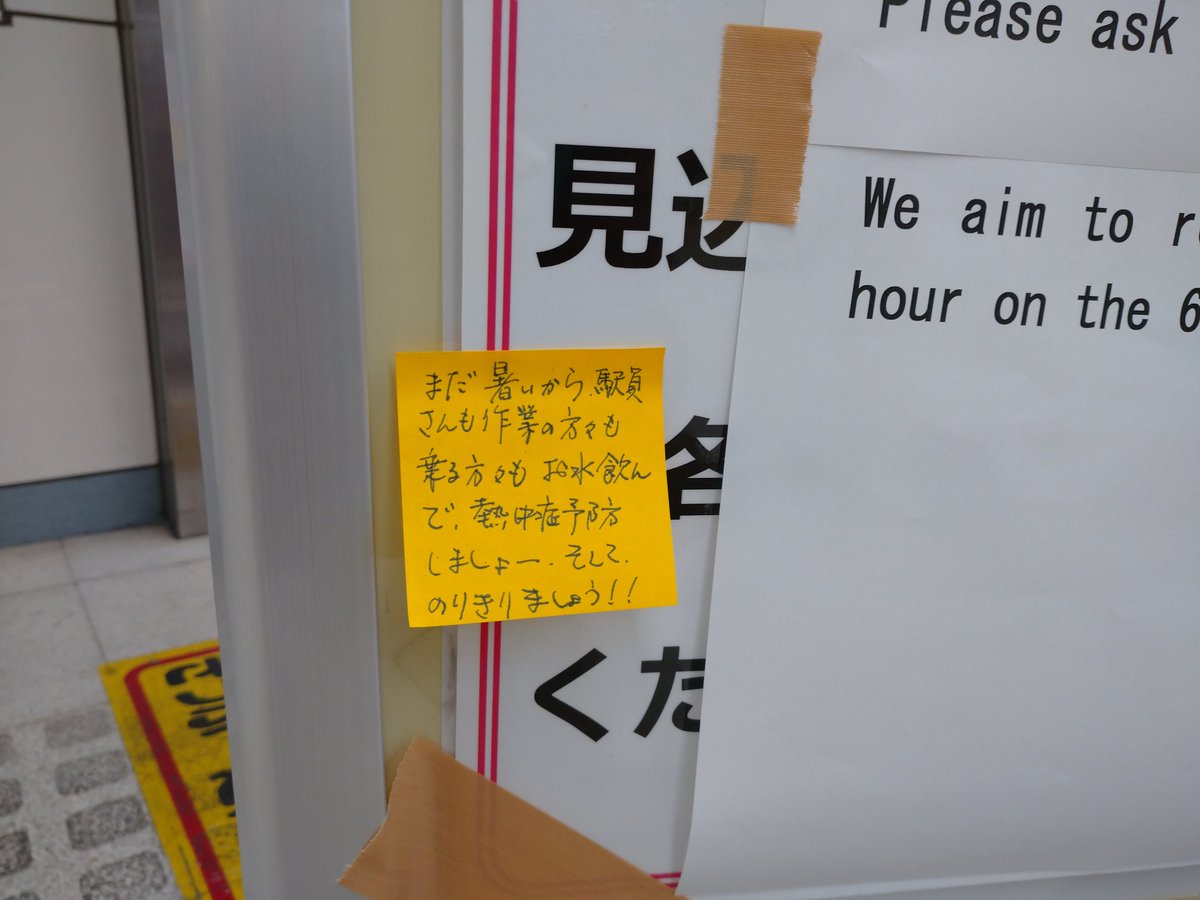 Please ask
We aim to r
hour on the 6
見込
各
くだ
まだ暑いから、駅員
さんも作業の方々も
乗る方々もお水飲ん
で、熱中症予防
しましょー。そして、
のりきりましょう!!